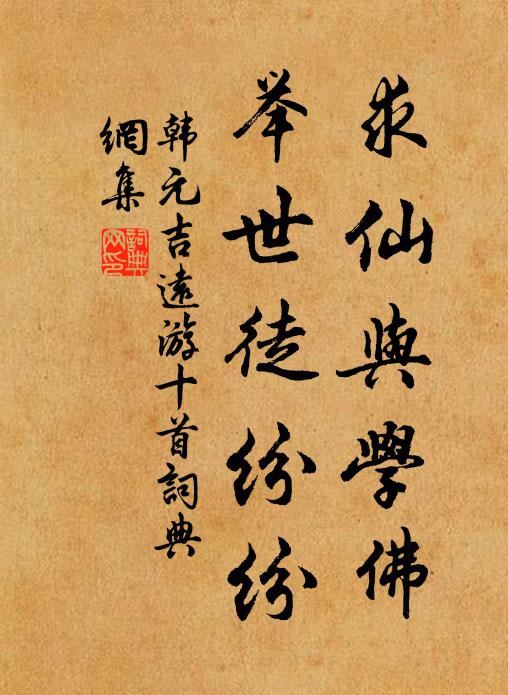 求仙與學佛
举世徒纷纷
韩元吉遠游十首詞典
網集
詞典網印